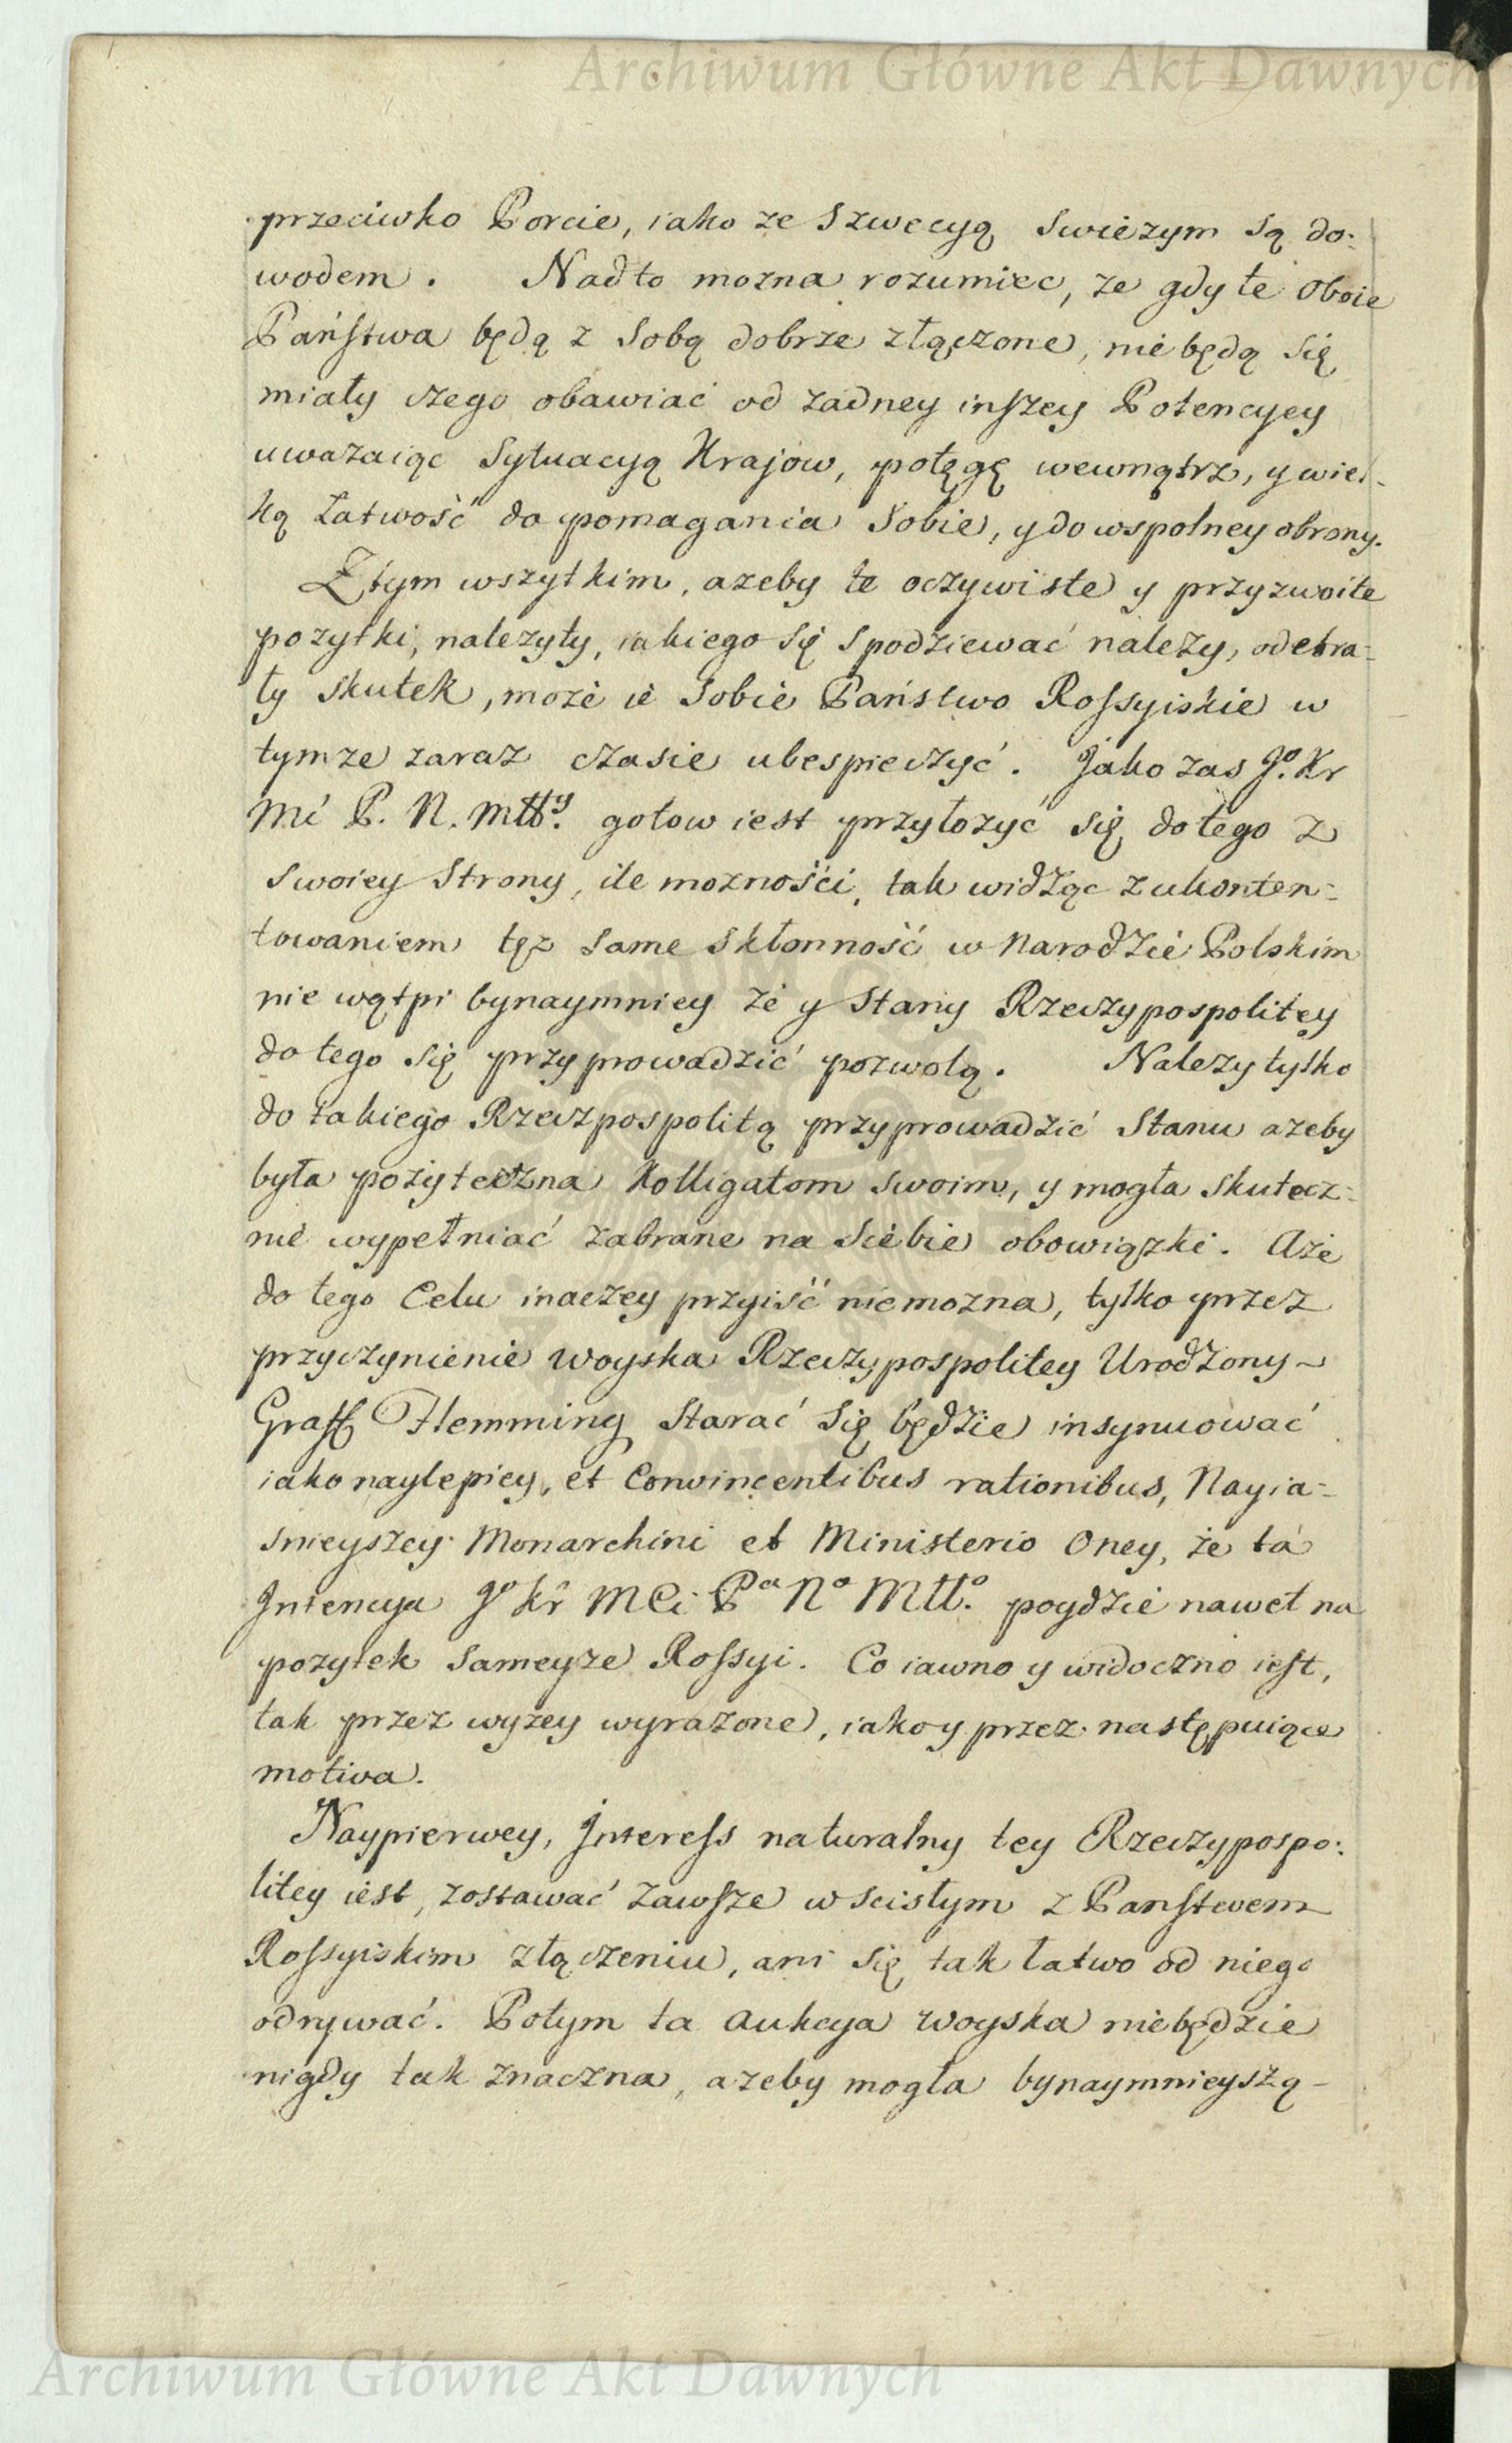 Archiwum Główne Akt Dawnych
przeciwko Porcie, iako ze Szwecyą swieżym są do:
wodem. Nadto mozna rozumiec, ze gdy te oboie
Pańſtwa będą z Sobą dobrze złączone, nie będą się
miały czego obawiać od zadney inſzey Potencyey
uwazaiąc Sytuacyą Krajow, potęgę wewnątrz, y wiel-
ką Łatwość do pomagania Sobie, y do wspolney obrony.
Z tym wszytkim, azeby te oczywiste y przyzwoite
pozytki, nalezyty, iakiego się spodziewać nalezy, odebra-
ły skutek, może ie Sobie Państwo Roſsyiskie w
tymze zaraz czasie ubespieczyć. Jako zas Jº. Kr
Mć P. N. Mttʸ. gotow iest przyłozyć się do tego z
swoiey Strony, ile mozności, tak widząc z ukonten-
towaniem tęz same skłonność w Narodzie Polskim
nie wątpi bynaymniey że y Stany Rzeczypospolitey
do tego się przyprowadzić pozwolą. Nalezy tylko
do takiego Rzeczpospolitą przyprowadzić Stanu azeby
była pożyteczna Kolligatom swoim, y mogła skutecz-
nie wypełniać zabrane na siebie obowiązki. Aże
do tego Celu inaczey przyiść niemozna, tylko przez
przyczynienie woyska Rzeczypospolitey Urodzony
Graff Flemming starać się będzie insynuować
iako naylepiey, et Convincentibus rationibus, Nayia-
snieyszey Monarchini et Ministerio Oney, że ta
Intencya Jº Kr MCi Pª Nº Mttº. poydzie nawet na
pozytek sameyze Roſsyi. Co iawno y widoczno ieſt,
tak przez wyzey wyrazone, iako y przez następuiące
motiva.
Naypierwey, Jntereſs naturalny tey Rzeczypospo:
litey iest, zostawać zawſze w scisłym z Panſtwem
Roſsyiskim złączeniu, ani się tak łatwo od niego
odrywać. Potym ta aukcya woyska niebędzie
nigdy tak znaczna, azeby mogła bynaymnieyszą-
Archiwum Główne Akt Dawnych